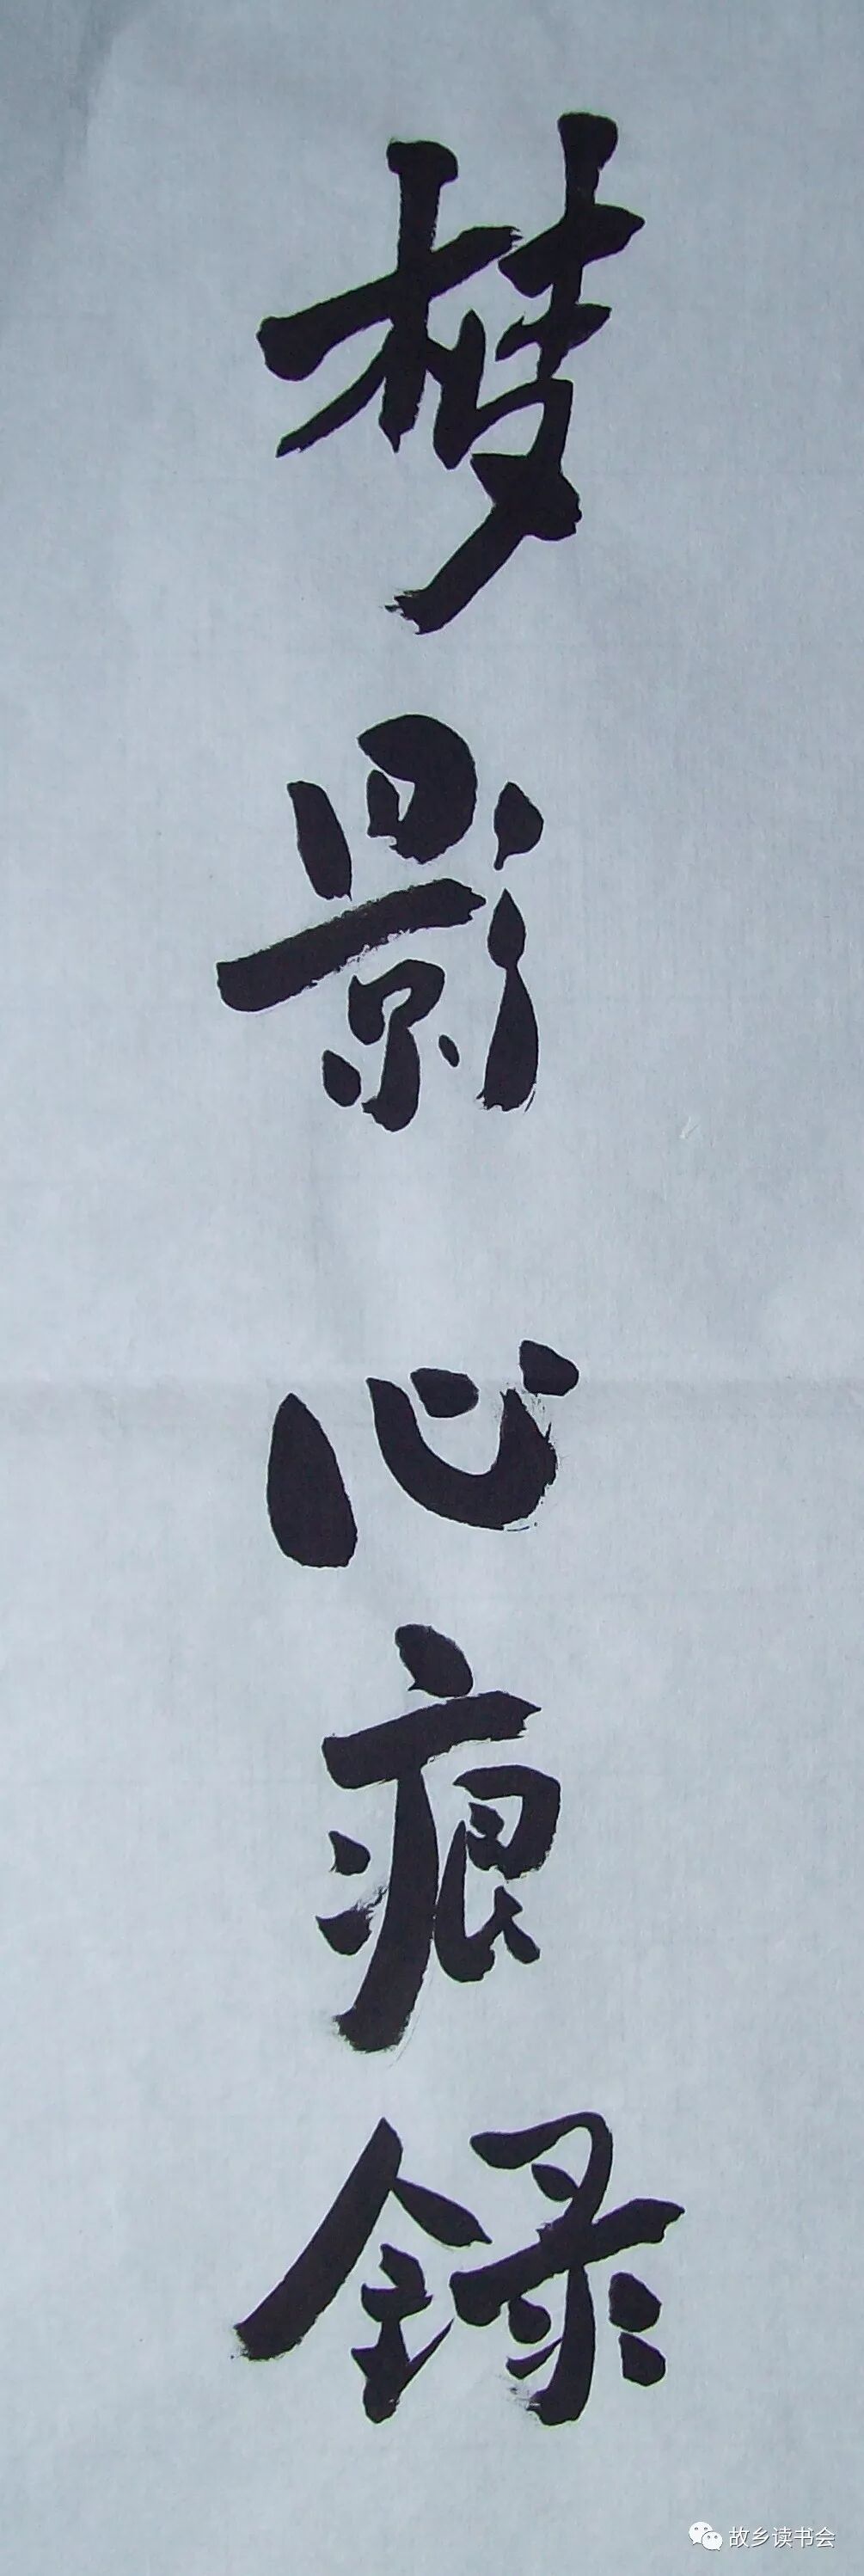 梦影心痕録
故乡读书会